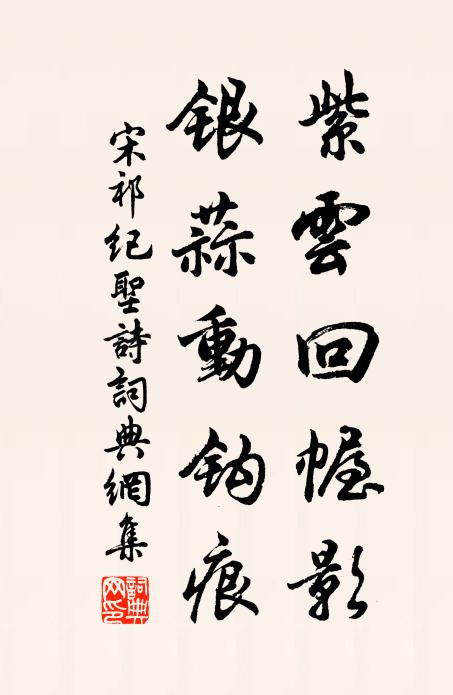 紫雲回幄影
銀蒜動鈎痕
宋祁紀聖詩詞典網集
詩詞典網印